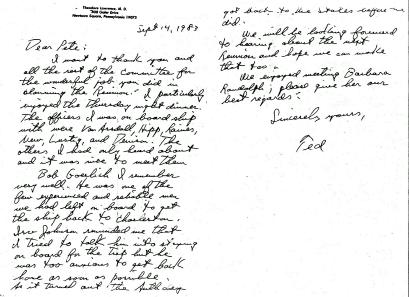 Theodore Lawrence, M. D.
Newtown Square, Pennsylvania 19073
Sept 14, 1983
Dear Pete:
I want to thank you and
all the rest of the Committee for
the wonderful job you did in
planning the Reunion. I particularly
enjoyed the Thursday night dinner.
The officers I was on board ship
with were Van Arsdall, Hipp, Raines,
New, Lusty, and Denison. The
others I had only heard about
and it was nice to meet them
Bob Goerlich I remember
very well. He was one of the
few experienced and reliable men
we had left on board to get
the ship back to Charleston.
Irv Johnson reminded me that
I tried to talk him into staying
on board for the trip but he
was too anxious to get back
home as soon as possible.
As it turned out the
got back to the States before we
did.
We will be looking forward
to hearing about the next
Reunion and hope we can make
that too.
We enjoyed meeting Barbara
Randolph; please give her our
best regards.
Sincerely yours,
Ted